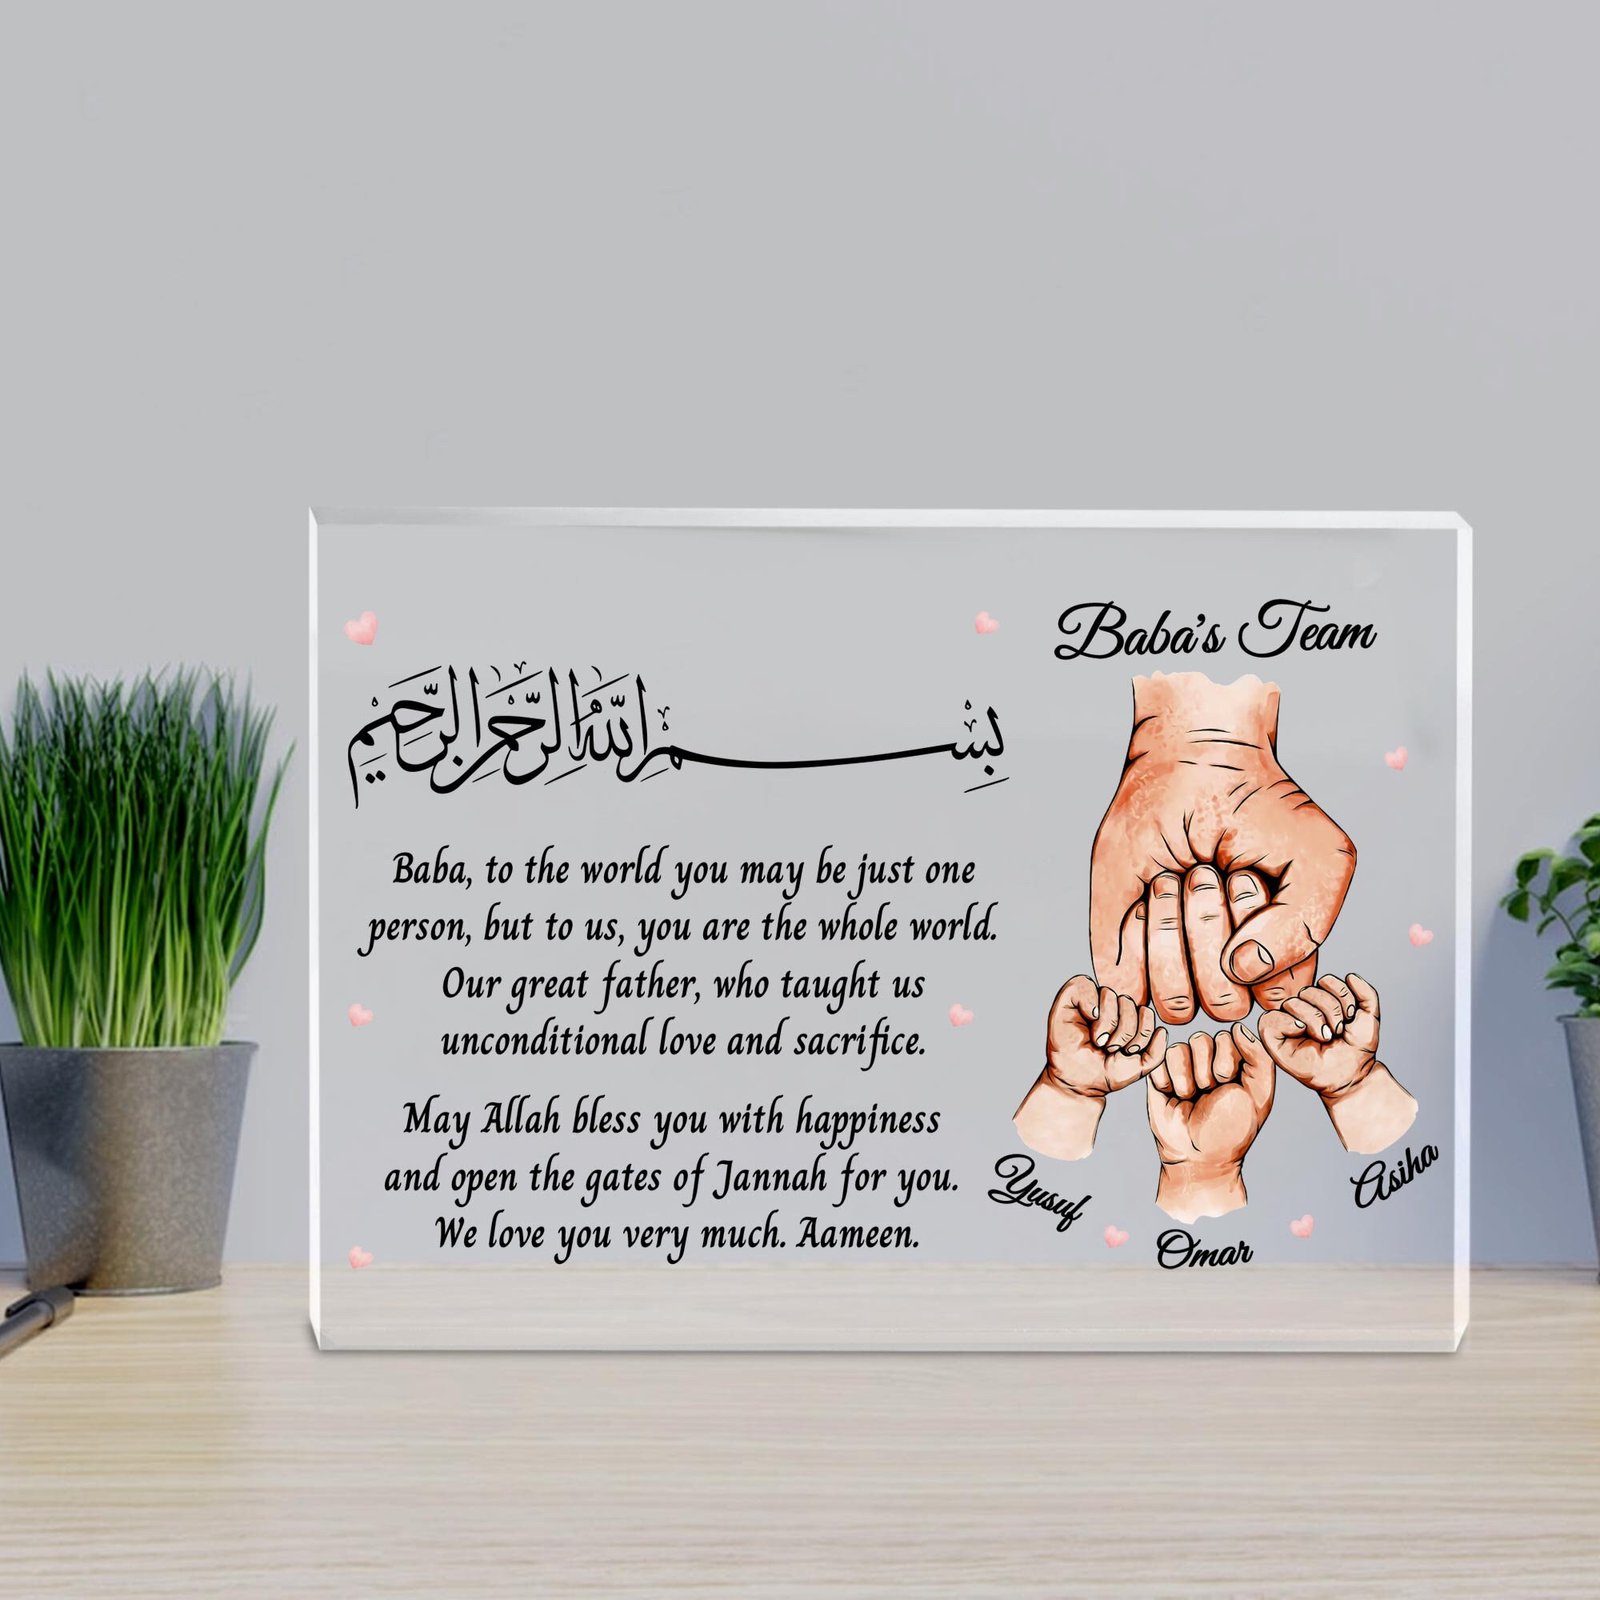 بِسْمِ اللّٰهِ الرَّحْمٰنِ الرَّحِيْمِ
Baba, to the world you may be just one
person, but to us, you are the whole world.
Our great father, who taught us
unconditional love and sacrifice.
May Allah bless you with happiness
and open the gates of Jannah for you.
We love you very much. Aameen.
Baba's Team
Yusuf
Omar
Asiha